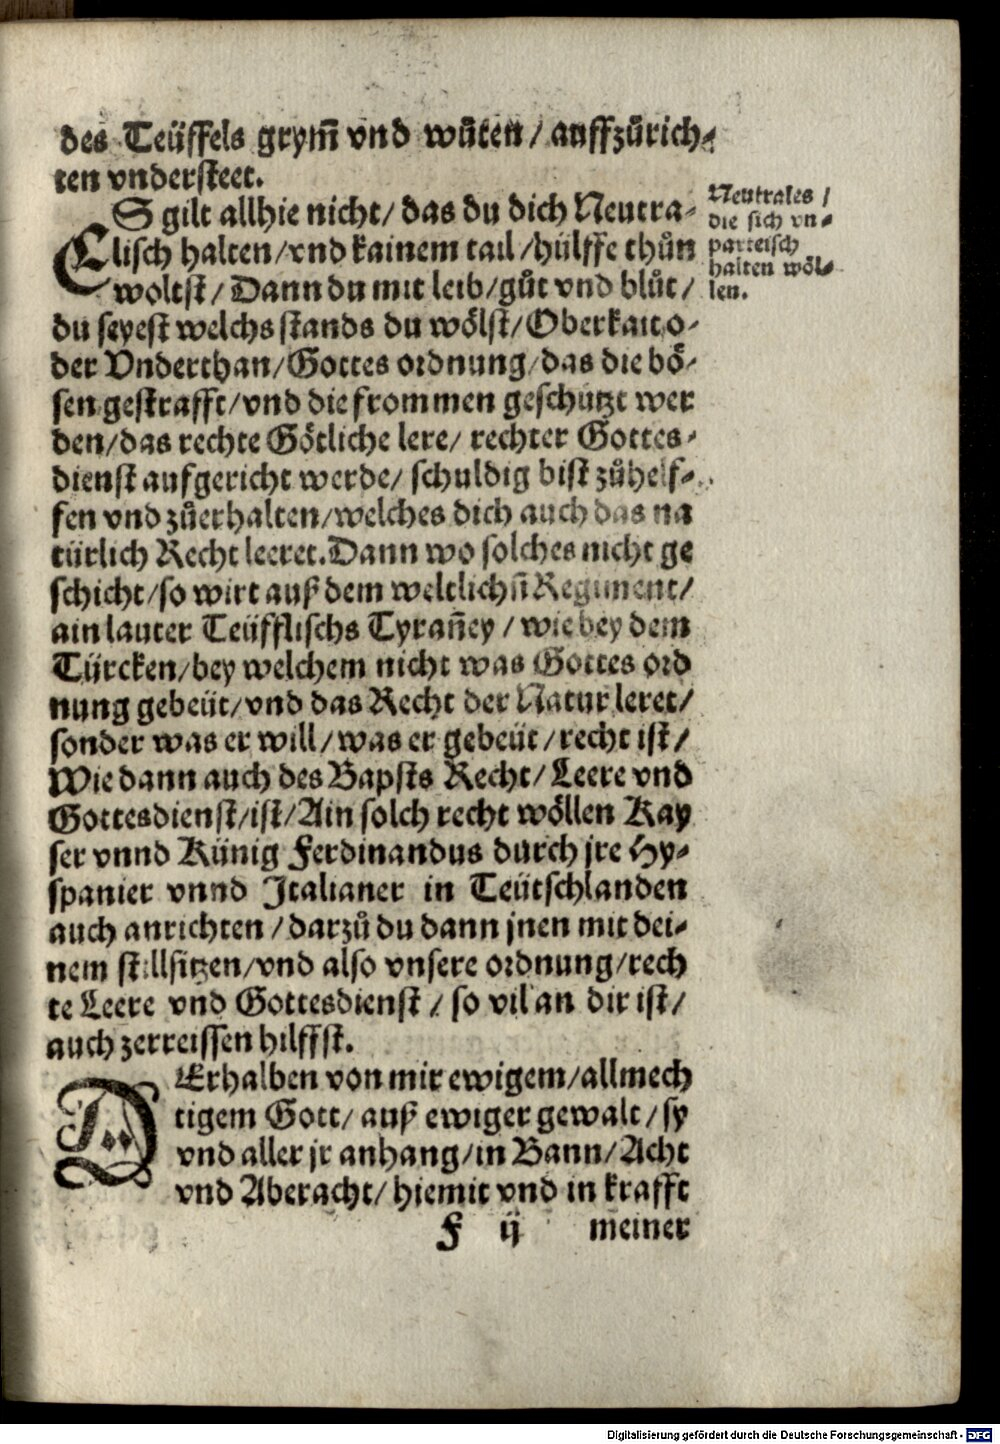 des Teüffels grym̃ vnd wůten / auffzůrich⸗
ten vndersteet.
ES gilt allhie nicht / das du dich Neutra⸗
lisch halten / vnd kainem tail / hülffe thůn
woltst / Dann du mit leib / gůt vnd blůt /
du seyest welchs stands du wölst / Oberkait o⸗
der Vnderthan / Gottes ordnung / das die bö⸗
sen gestrafft / vnd die frommen geschützt wer
den / das rechte Götliche lere / rechter Gottes⸗
dienst aufgericht werde / schuldig bist zůhelf⸗
fen vnd zůerhalten / welches dich auch das na
türlich Recht leeret. Dann wo solches nicht ge
schicht / so wirt auß dem weltlichñ Regiment /
ain lauter Teüfflischs Tyrañey / wie bey dem
Türcken / bey welchem nicht was Gottes ord
nung gebeüt / vnd das Recht der Natur leret /
sonder was er will / was er gebeüt / recht ist /
Wie dann auch des Bapsts Recht / Leere vnd
Gottesdienst / ist / Ain solch recht wöllen Kay
ser vnnd Künig Ferdinandus durch jre Hy⸗
spanier vnnd Italianer in Teütschlanden
auch anrichten / darzů du dann jnen mit dei⸗
nem stillsitzen / vnd also vnsere ordnung / rech
te Leere vnd Gottesdienst / so vil an dir ist /
auch zerreissen hilffst.
DErhalben von mir ewigem / allmech
tigem Gott / auß ewiger gewalt / sy
vnd aller jr anhang / in Bann / Acht
vnd Aberacht / hiemit vnd in krafft
F ij meiner
Neutrales /
die sich vn⸗
parteisch
halten wöl⸗
len.
Digitalisierung gefördert durch die Deutsche Forschungsgemeinschaft - DFG